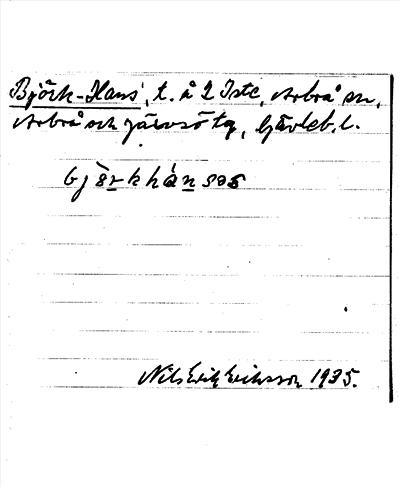 Björk-Hans', t. å 2 Iste, Arbrå sn,
Arbrå och Järvsö tg, Gävleb. l.
bjö̀rkhá̠nsəs
Nils Erik Eriksson 1935.